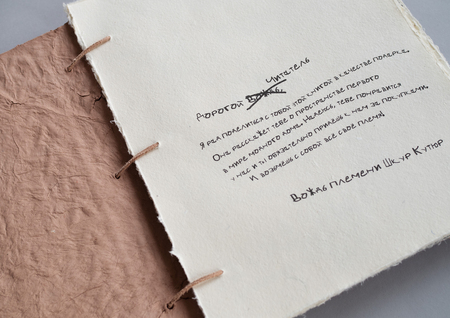 Читатель
Дорогой Вождь
Я рад поделиться с собой этой книгой в качестве подарка.
Она расскажет тебе о пространстве первого
в мире модного дома. Надеюсь, тебе понравится
у нас и ты обязательно придешь к нам за покупками.
И возьмешь с собой все свое племя!
Вождь племени Шкур Кутюр